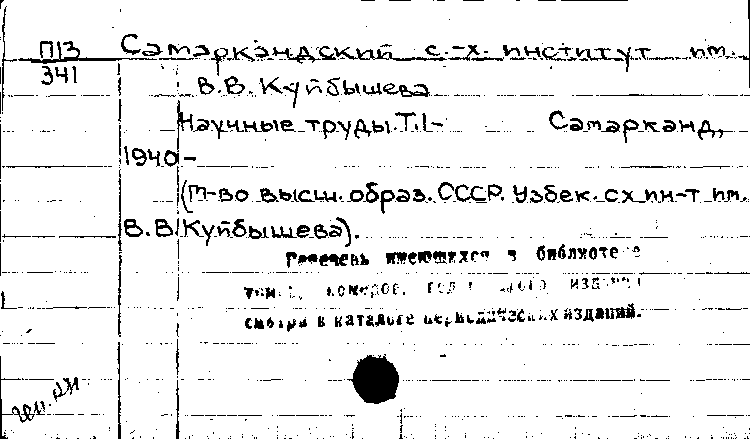 П13 Самаркандский с.-х. институт им.
341
В.В. Куйбышева
Научные труды. Т.1- Самарканд,
1940-
(М-во высш. образ. СССР. Узбек. сх ин-т им.
В.В. Куйбышева).
Перечень имеющихся в библиотеке
томов, номеров, год издания
смотри в каталоге периодических изданий.